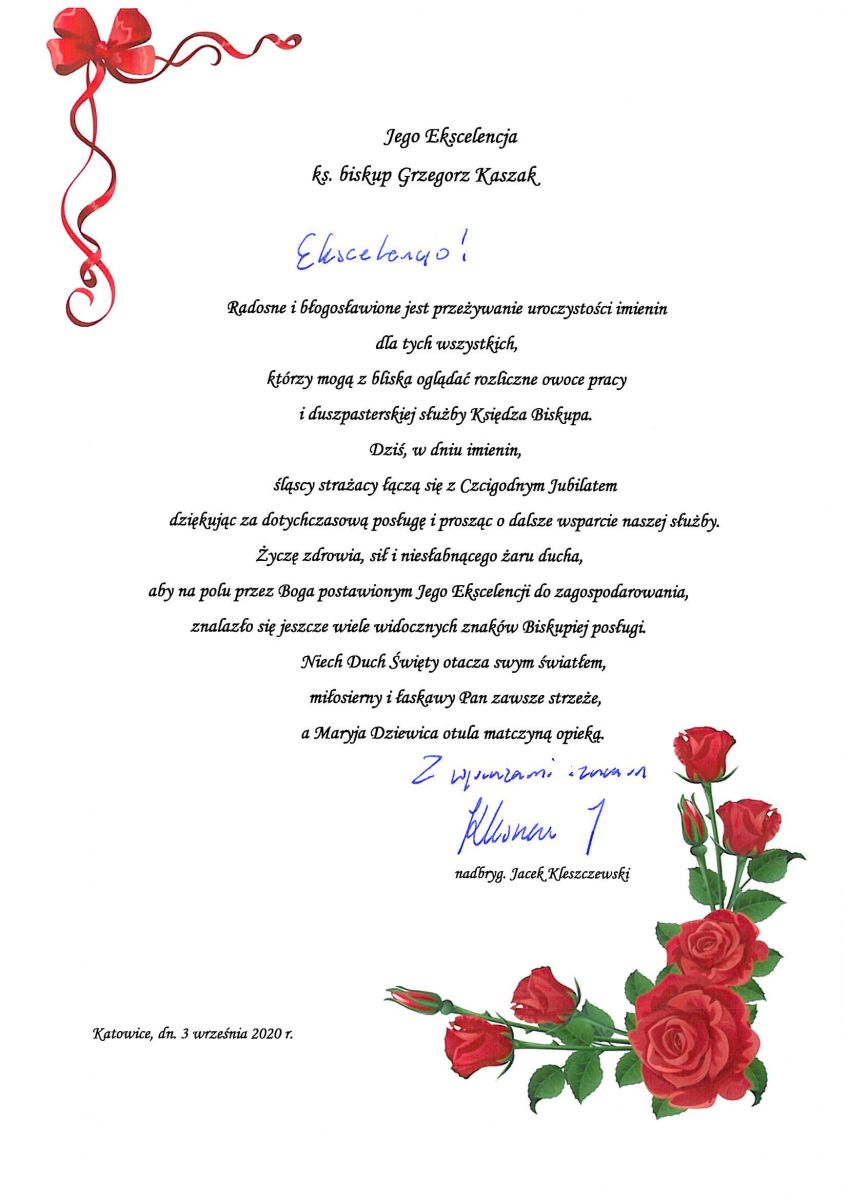 Jego Ekscelencja
ks. biskup Grzegorz Kaszak
Ekscelencjo!
Radosne i błogosławione jest przeżywanie uroczystości imienin
dla tych wszystkich,
którzy mogą z bliska oglądać rozliczne owoce pracy
i duszpasterskiej służby Księdza Biskupa.
Dziś, w dniu imienin,
śląscy strażacy łączą się z Czcigodnym Jubilatem
dziękując za dotychczasową posługę i prosząc o dalsze wsparcie naszej służby.
Życzę zdrowia, sił i niesłabnącego żaru ducha,
aby na polu przez Boga postawionym Jego Ekscelencji do zagospodarowania,
znalazło się jeszcze wiele widocznych znaków Biskupiej posługi.
Niech Duch Święty otacza swym światłem,
miłosierny i łaskawy Pan zawsze strzeże,
a Maryja Dziewica otula matczyną opieką.
Z wyrazami
nadbryg. Jacek Kleszczewski
Katowice, dn. 3 września 2020 r.